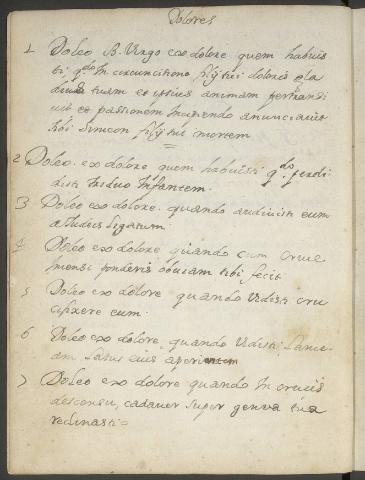 Dolores
1 Doleo B. Virgo exo dolore quem habuis
ti qdo in circuncisione filij tui doloris gla
dius tuam et ipsius animam pertransi
vit et passionem inspiendo anunciavit
tibi Simeon filij tui mortem
2 Doleo exo dolore quem habuisti qdo perdi
disti triduo Infantem.
3 Doleo exo dolore. quando audivisti eum
a Iudeis ligatum.
4 Doleo exo dolore quando cum cruce
mensi ponderis obviam tibi fecit
5 Doleo exo dolore quando vidisti cru
cifixere eum.
6 Doleo exo dolore, quando vidisti lance
am latus eius aperi
7 Doleo exo dolore quando in crucis
descensu, cadaver super genua tua
reclinasti=